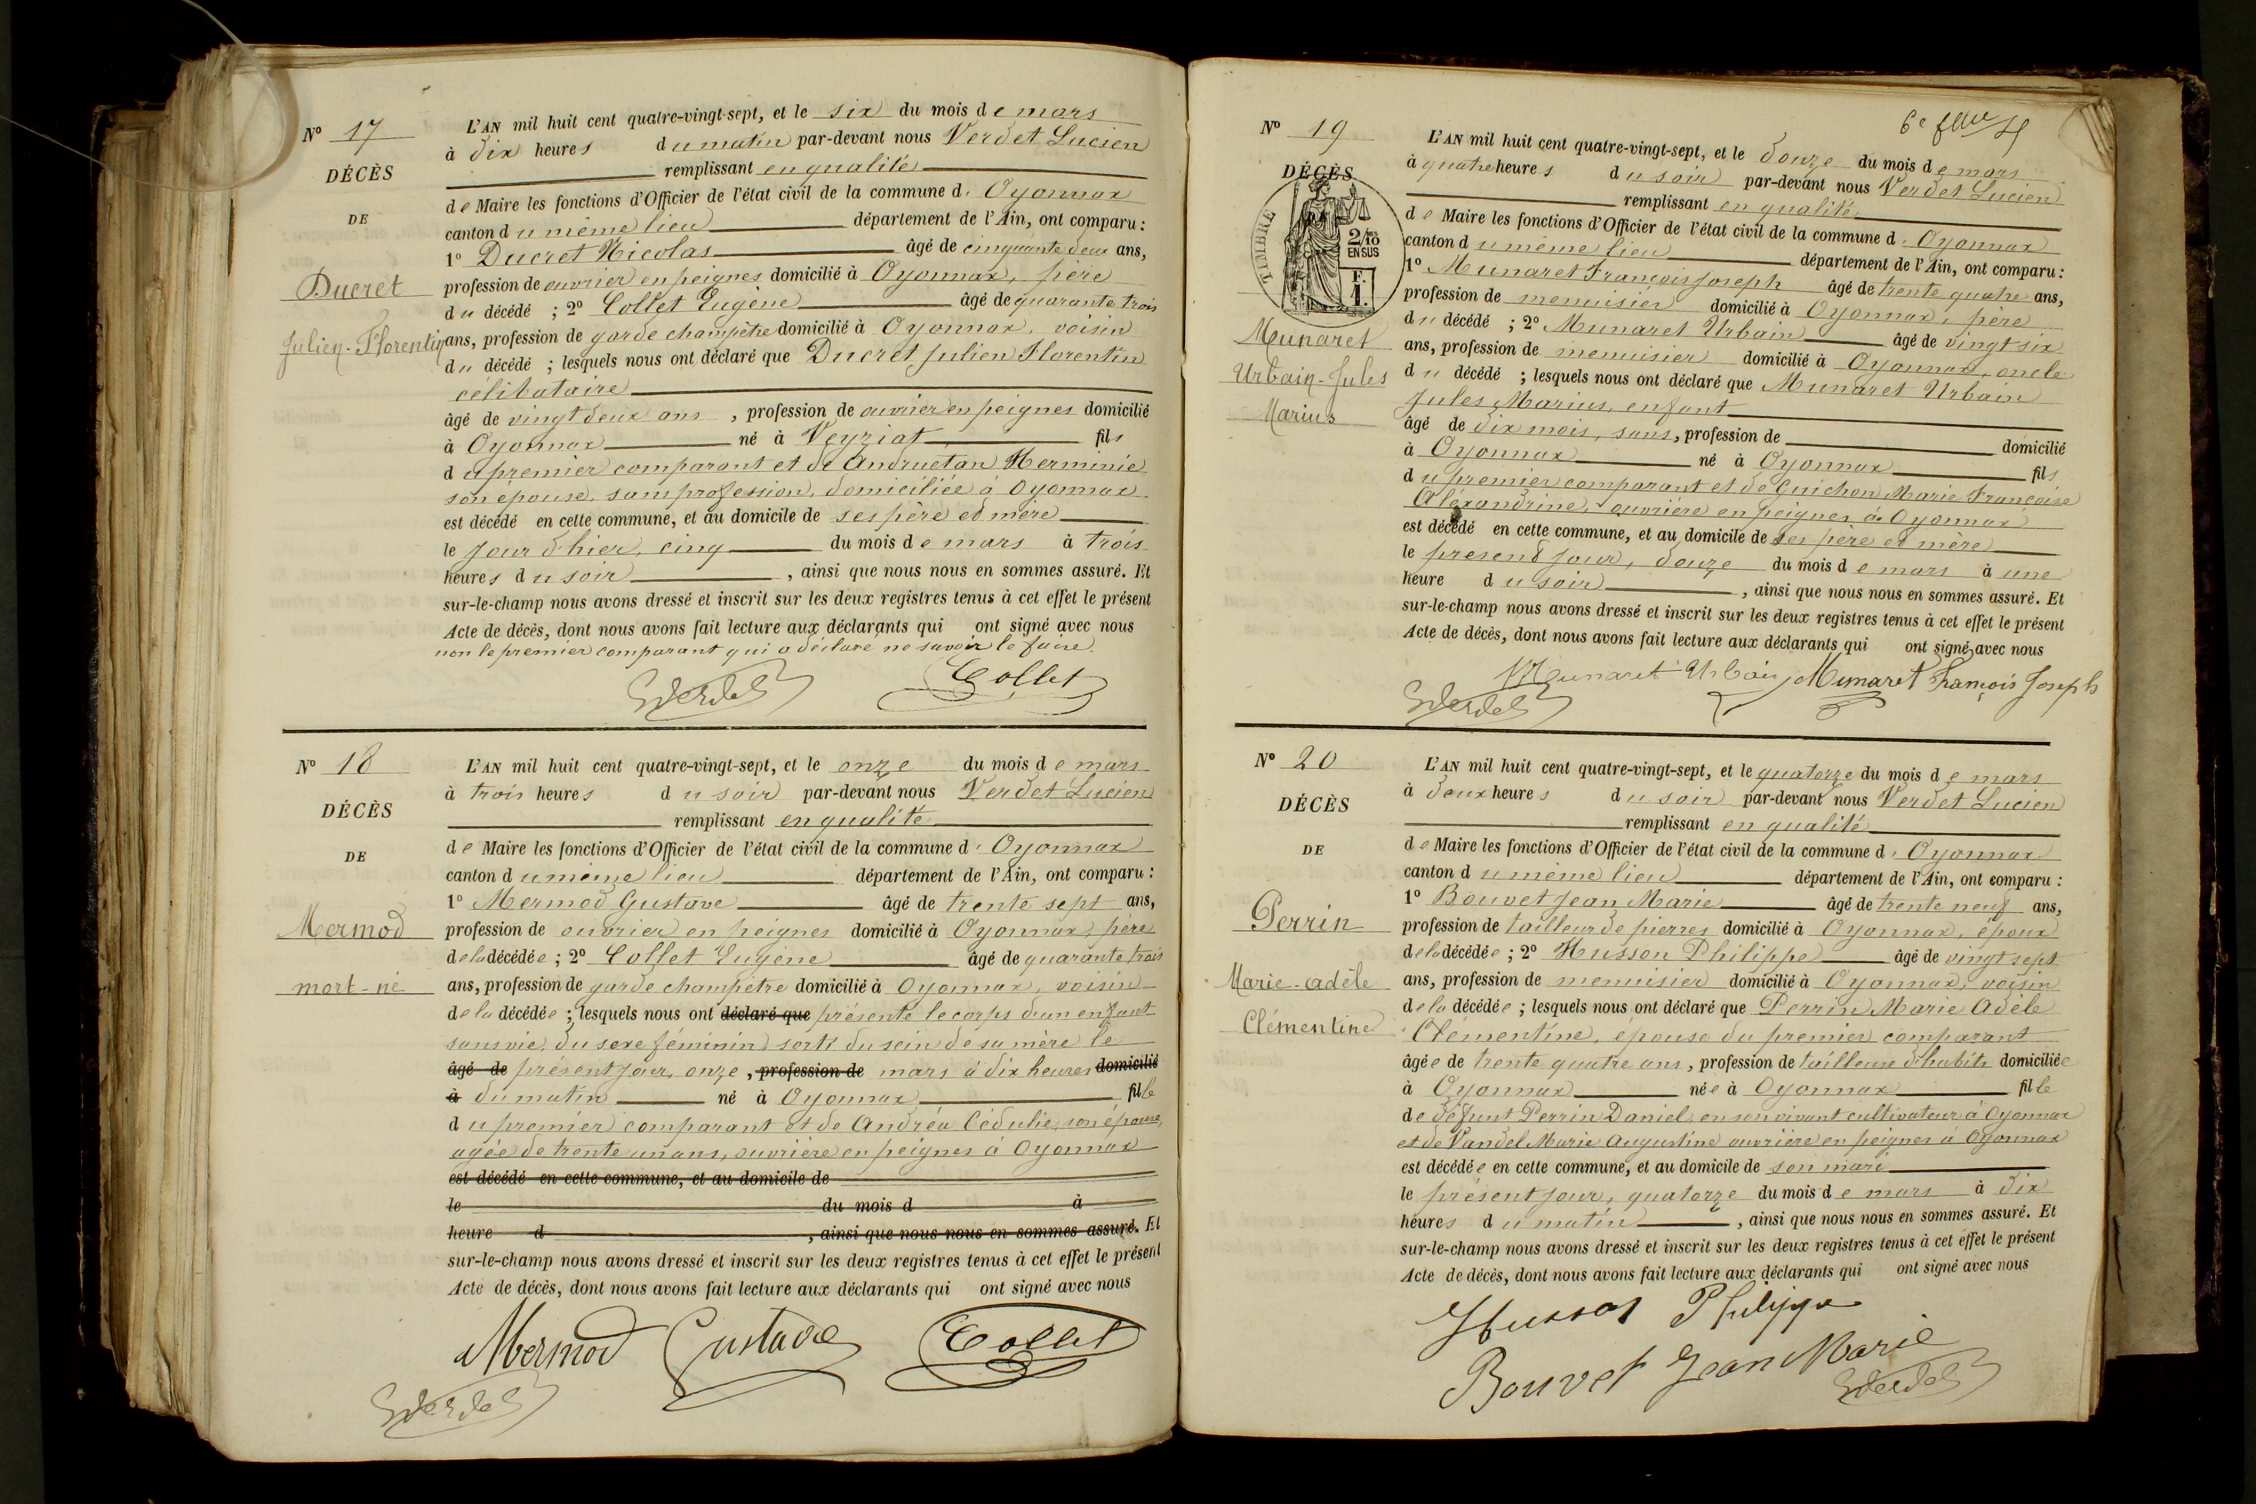 N° 17
DÉCÈS
DE
Ducret
Julien-Florentin
L'AN mil huit cent quatre-vingt-sept, et le six du mois de mars
à dix heures du matin par-devant nous Verdet Lucien
remplissant en qualité
de Maire les fonctions d'Officier de l'état civil de la commune d' Oyonnax
canton du même lieu département de l'Ain, ont comparu :
1° Ducret Nicolas âgé de cinquante deux ans,
profession de ouvrier en peignes domicilié à Oyonnax, père
du décédé ; 2° Collet Eugène âgé de quarante trois
ans, profession de garde champêtre domicilié à Oyonnax, voisin
du décédé ; lesquels nous ont déclaré que Ducret Julien Florentin
célibataire
âgé de vingt deux ans , profession de ouvrier en peignes domicilié
à Oyonnax né à Veyziat fils
du premier comparant et de Andruetan Herminie
son épouse, sans profession, domiciliée à Oyonnax
est décédé en cette commune, et au domicile de ses père et mère
le jour d'hier, cinq du mois de mars à trois
heures du soir , ainsi que nous nous en sommes assuré. Et
sur-le-champ nous avons dressé et inscrit sur les deux registres tenus à cet effet le présent
Acte de décès, dont nous avons fait lecture aux déclarants qui ont signé avec nous
non le premier comparant qui a déclaré ne savoir le faire.
Verdet Collet
N° 18
DÉCÈS
DE
Mermod
mort-né
L'AN mil huit cent quatre-vingt-sept, et le onze du mois de mars
à trois heures du soir par-devant nous Verdet Lucien
remplissant en qualité
de Maire les fonctions d'Officier de l'état civil de la commune d' Oyonnax
canton du même lieu département de l'Ain, ont comparu :
1° Mermod Gustave âgé de trente sept ans,
profession de ouvrier en peignes domicilié à Oyonnax, père
de la décédée ; 2° Collet Eugène âgé de quarante trois
ans, profession de garde champêtre domicilié à Oyonnax, voisin
de la décédée ; lesquels nous ont déclaré que présenté le corps d'un enfant
sans vie, du sexe féminin sorti du sein de sa mère le
âgé de présent jour, onze , profession de mars à dix heures domicilié
à du matin né à Oyonnax fille
du premier comparant et de Andréa Cédulie, son épouse,
agée de trente un ans, ouvrière en peignes à Oyonnax
est décédé en cette commune, et au domicile de
le du mois d à
heure d , ainsi que nous nous en sommes assuré. Et
sur-le-champ nous avons dressé et inscrit sur les deux registres tenus à cet effet le présent
Acte de décès, dont nous avons fait lecture aux déclarants qui ont signé avec nous
Mermod Gustave Collet
Verdet
6e
N° 19
DÉCÈS
TIMBRE
2/10 EN SUS
F. 1.
Munaret
Urbain-Jules
Marius
L'AN mil huit cent quatre-vingt-sept, et le douze du mois de mars
à quatre heures du soir par-devant nous Verdet Lucien
remplissant en qualité
de Maire les fonctions d'Officier de l'état civil de la commune d' Oyonnax
canton du même lieu département de l'Ain, ont comparu :
1° Munaret François Joseph âgé de trente quatre ans,
profession de menuisier domicilié à Oyonnax, père
du décédé ; 2° Munaret Urbain âgé de vingt six
ans, profession de menuisier domicilié à Oyonnax, oncle
du décédé ; lesquels nous ont déclaré que Munaret Urbain
Jules Marius, enfant
âgé de dix mois, sans, profession de domicilié
à Oyonnax né à Oyonnax fils
du premier comparant et de Guichon Marie Françoise
Aléxandrine, ouvrière en peignes à Oyonnax
est décédé en cette commune, et au domicile de ses père et mère
le présent jour, douze du mois de mars à une
heure du soir , ainsi que nous nous en sommes assuré. Et
sur-le-champ nous avons dressé et inscrit sur les deux registres tenus à cet effet le présent
Acte de décès, dont nous avons fait lecture aux déclarants qui ont signé avec nous
Munaret Urbain Munaret François Joseph
Verdet
N° 20
DÉCÈS
DE
Perrin
Marie-Adèle
Clémentine
L'AN mil huit cent quatre-vingt-sept, et le quatorze du mois de mars
à deux heures du soir par-devant nous Verdet Lucien
remplissant en qualité
de Maire les fonctions d'Officier de l'état civil de la commune d' Oyonnax
canton du même lieu département de l'Ain, ont comparu :
1° Bouvet Jean Marie âgé de trente neuf ans,
profession de tailleur de pierres domicilié à Oyonnax, époux
de la décédée ; 2° Husson Philippe âgé de vingt sept
ans, profession de menuisier domicilié à Oyonnax, voisin
de la décédée ; lesquels nous ont déclaré que Perrin Marie Adèle
Clémentine, épouse du premier comparant
âgée de trente quatre ans, profession de tailleuse d'habits domiciliée
à Oyonnax née à Oyonnax fille
de défunt Perrin Daniel, en son vivant cultivateur à Oyonnax
et de Vandel Marie Augustine ouvrière en peignes à Oyonnax
est décédée en cette commune, et au domicile de son mari
le présent jour, quatorze du mois de mars à dix
heures du matin , ainsi que nous nous en sommes assuré. Et
sur-le-champ nous avons dressé et inscrit sur les deux registres tenus à cet effet le présent
Acte de décès, dont nous avons fait lecture aux déclarants qui ont signé avec nous
Husson Philippe
Bouvet Jean Marie
Verdet